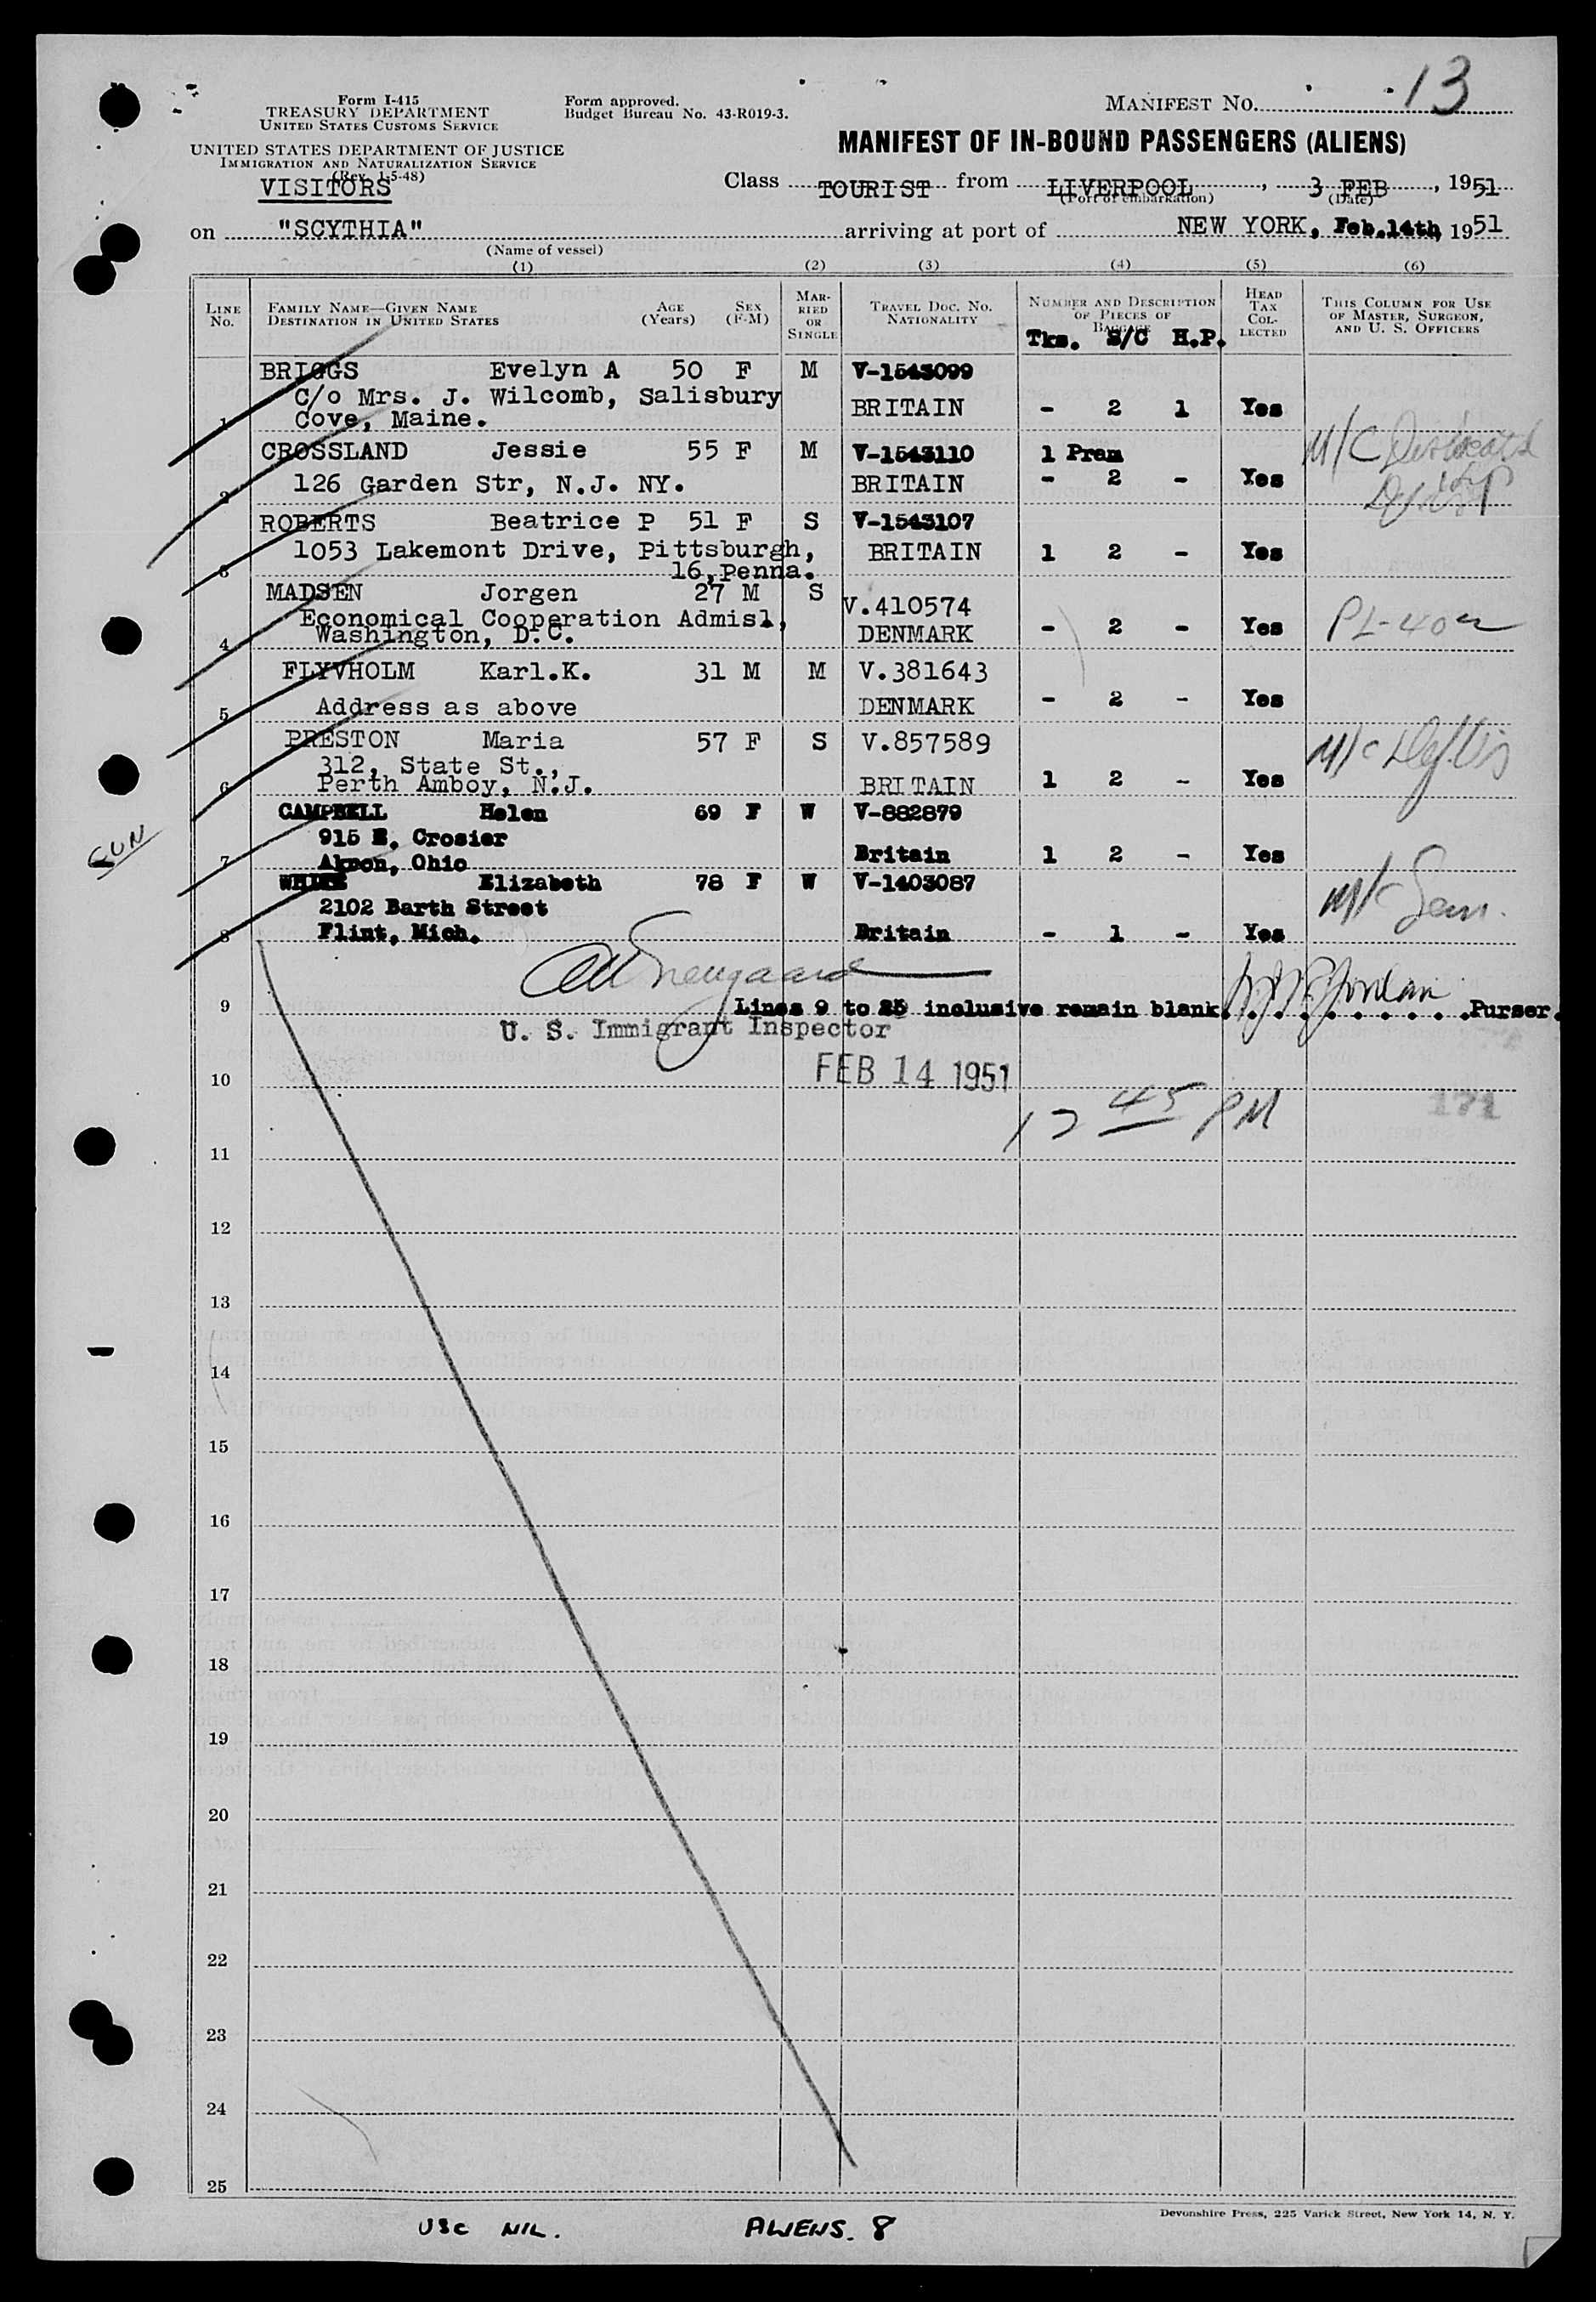 Form I-415
TREASURY DEPARTMENT
UNITED STATES CUSTOMS SERVICE
UNITED STATES DEPARTMENT OF JUSTICE
IMMIGRATION AND NATURALIZATION SERVICE
(Rev. 1-5-48)
VISITORS
Form approved.
Budget Bureau No. 43-R019-3.
MANIFEST NO. 13
MANIFEST OF IN-BOUND PASSENGERS (ALIENS)
Class TOURIST from LIVERPOOL, 3 FEB, 1951
(Port of embarkation) (Date)
on "SCYTHIA" arriving at port of NEW YORK, Feb.14th, 1951
(Name of vessel)
(1) (2) (3) (4) (5) (6)
LINE No. FAMILY NAME—GIVEN NAME DESTINATION IN UNITED STATES AGE (Years) SEX (F-M) MARRIED OR SINGLE TRAVEL DOC. NO. NATIONALITY NUMBER AND DESCRIPTION OF PIECES OF BAGGAGE HEAD TAX COLLECTED THIS COLUMN FOR USE OF MASTER, SURGEON, AND U. S. OFFICERS
Tks. S/C H.P.
BRIGGS Evelyn A 50 F M V-1543099
C/o Mrs. J. Wilcomb, Salisbury BRITAIN - 2 1 Yes
1 Cove, Maine.
CROSSLAND Jessie 55 F M V-1543110 1 Pram M/C
2 126 Garden Str, N.J. NY. BRITAIN - 2 - Yes
ROBERTS Beatrice P 51 F S V-1543107
1053 Lakemont Drive, Pittsburgh, BRITAIN 1 2 - Yes
3 16,Penna.
MADSEN Jorgen 27 M S V.410574
Economical Cooperation Admisl, PL-40
4 Washington, D.C. DENMARK - 2 - Yes
FLYVHOLM Karl.K. 31 M M V.381643
5 Address as above DENMARK - 2 - Yes
PRESTON Maria 57 F S V.857589
312, State St., M/C
6 Perth Amboy, N.J. BRITAIN 1 2 - Yes
CAMPBELL Helen 69 F W V-882879
915 E. Crosier
7 Akron, Ohio Britain 1 2 - Yes
SUN
WHITE Elizabeth 78 F W V-1403087
2102 Barth Street M/C Sen.
8 Flint, Mich. Britain - 1 - Yes
9 Lines 9 to 25 inclusive remain blank. Jordan Purser.
U. S. Immigrant Inspector
FEB 14 1951
10
12 45 PM
171
11
12
13
14
15
16
17
18
19
20
21
22
23
24
25
Devonshire Press, 225 Varick Street, New York 14, N. Y.
USC NIL. ALIENS. 8